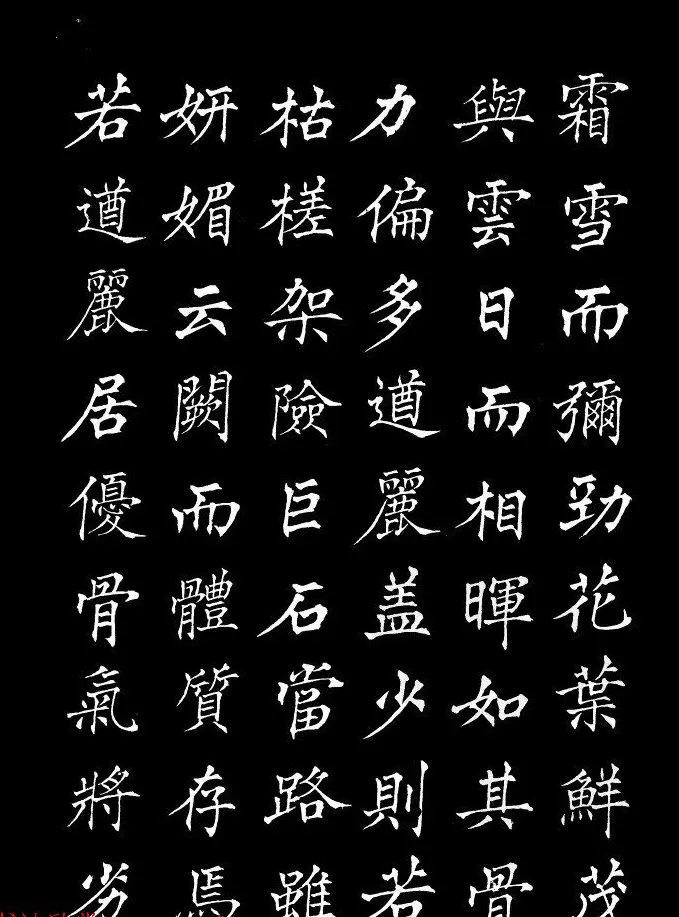 霜雪而彌勁花葉鮮茂
與雲日而相暉如其骨
力偏多遒麗盖少則若
枯槎架險巨石當路雖
妍媚云闕而體質存焉
若遒麗居優骨氣將劣